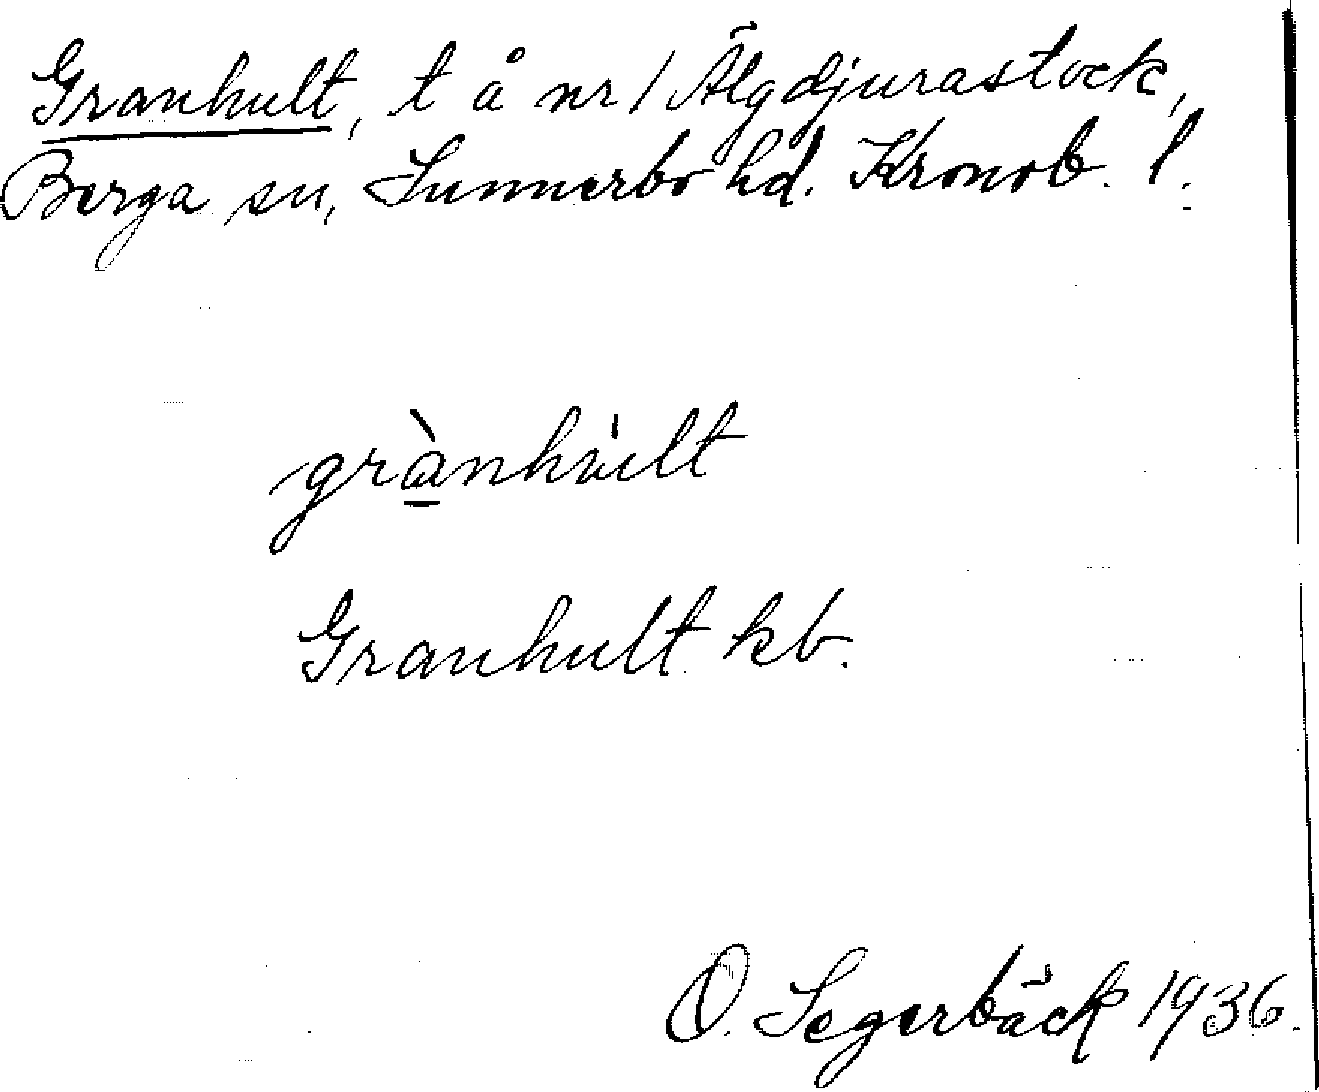 Granhult, t å nr 1 Älgdjurastock,
Berga sn, Sunnerbo hd. Kronob. l.
grànhùlt
Granhult kb.
O. Segerbäck 1936.